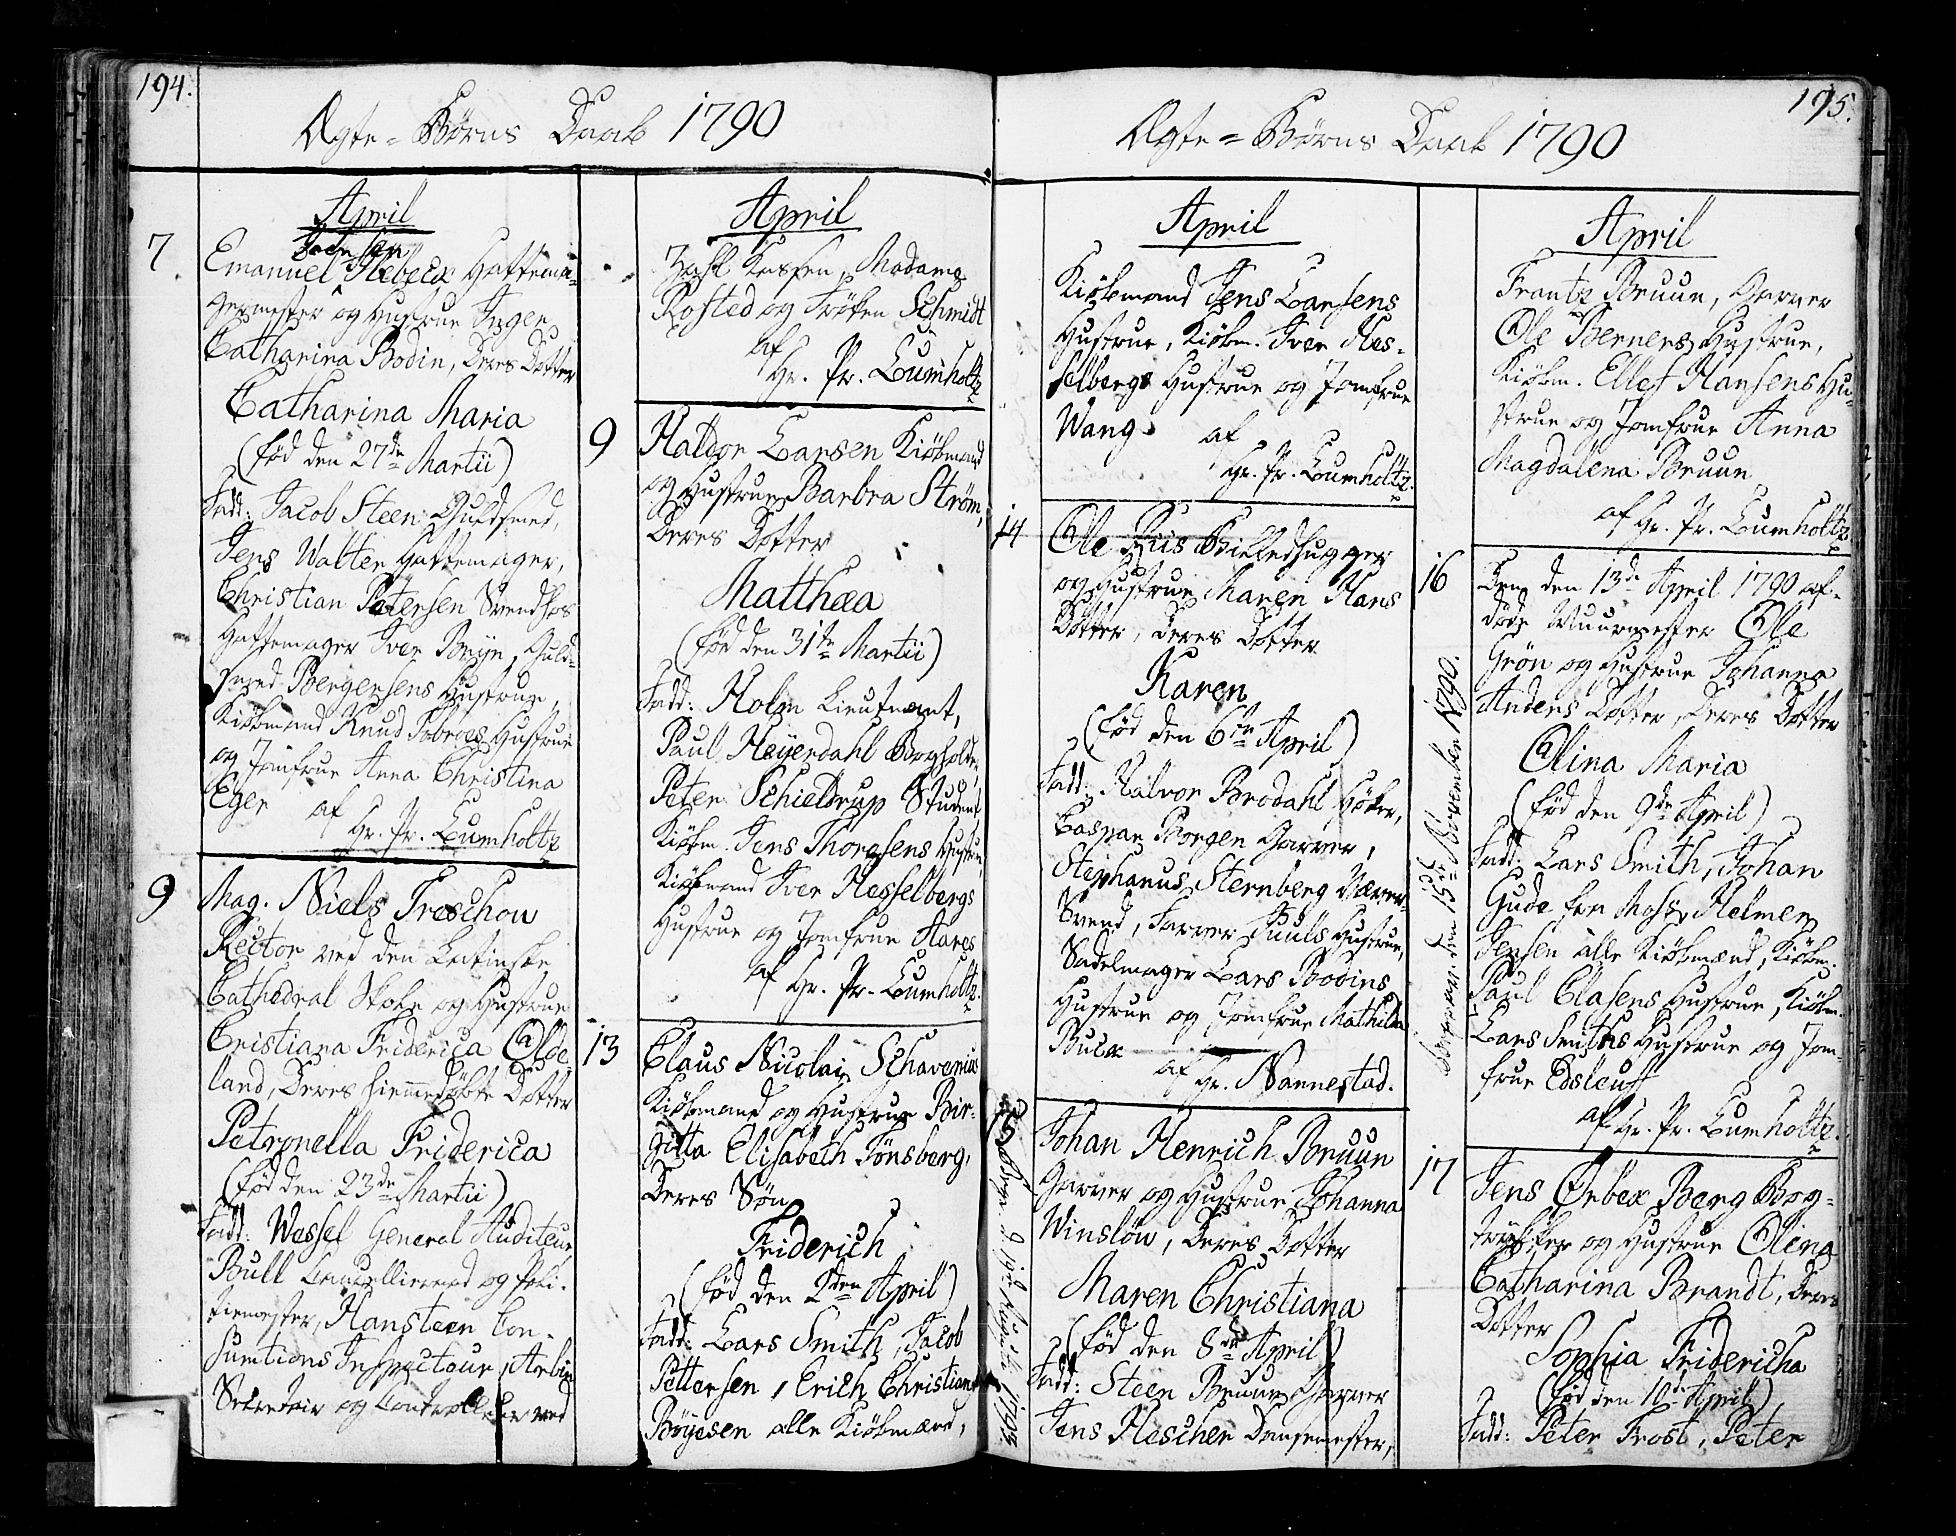 194.
Ægte=Børns Daab 1790
April
7
Jacobsen
Emanuel Flebeck Hattema=
germester og Hustrue Inger
Catharina Bodin, Deres Dotter
Catharina Maria
(fød den 27de Martii)
Fadd: Jacob Steen Guldsmed,
Jens Walter Hattemager,
Christian Petersen Svend hos
Hattemager Iver Bryn, Guld=
smed Børgensens Hustrue,
Kiøbmand Knud Hustrue
og Jomfrue Anna Christina
Eger af
Hr. Pr. Lumholtz
9
Mag. Niels Treschow
Rector ved den Latinske
Cathedral Skole og Hustrue
Cristiana Friderica Olde
land, Deres hiemmedøbte Dotter
Petronella Friderica
(fød den 23de Martii)
Fadd: Wessel General Auditeur
Bull Cancellieraad og Poli=
tiemester, Hansteen Con=
sumtions Inspecteur,
Secretair og Controlleur ved
April
Zahl Kassen, Madame
Rosted og Frøken Schmidt
af
Hr. Pr. Lumholtz
9
Haldor Larsen Kiøbmand
og Hustrue Barbra Strøm,
Deres Dotter
Matthæa
(fød den 31te Martii)
Fadd: Holm Lieutnant,
Paul Heyerdahl Bogholder,
Peter Schieldrup Student,
Kiøbm. Jens Thoresens Hustrue,
Kiøbmand Iver Hesselbergs
Hustrue og Jomfrue Hares
af Hr. Pr. Lumholtz.
13
Claus Nicolai Schavenius
Kiøbmand og Hustrue Bir=
gitta Elisabeth Tønsberg,
Deres Søn
Friderich
(fød den 2den April)
Fadd: Lars Smith, Jacob
Pettersen, Erich Christian
Bøyesen alle Kiøbmænd,
195.
Ægte=Børns Daab 1790
April
Kiøbmand Jens Larsens
Hustrue, Kiøbm. Iver Hes=
selbergs Hustrue og Jomfrue
Wang. af
Hr. Pr. Lumholtz.
14
Ole Riis Billedhugger
og Hustrue Maren Hans
Dotter, Deres Dotter
Karen
(fød den 6te April)
Fadd: Halvor Brodahl Høker,
Caspar Borgen Garver,
Stephanus Sternberg
Svend, Farver Juuls Hustrue,
Sadelmager Lars Bodins
Hustrue og Jomfrue Mathilda
Buck
af Hr. Nannestad.
Johan Henrich Bruun
Garver og Hustrue Johanna
Winsløw, Deres Dotter
Maren Christiana
(fød den 8de April)
Fadd: Steen Bruun Garver
Jens Flescher Dansemester,
1793.
April
Frantz Bruun, Garver
Ole Berners Hustrue,
Kiøbm. Ellef Hansens Hu=
strue og Jomfrue Anna
Magdalena Bruun
af Hr. Pr. Lumholtz
16
Den den 13de April 1790 af=
døde Muurmester Ole
Grøn og Hustrue Johanna
Anders Dotter, Deres Dotter
Olina Maria
(fød den 9de April)
Fadd: Lars Smith, Johan
Gude fra Moss, Helmer
Jensen alle Kiøbmænd, Kiøbm.
Paul Clasens Hustrue, Kiøbm.
Lars Smiths Hustrue og Jom=
frue Edsleuff
af Hr. Pr. Lumholtz.
den 15de November 1790.
17
Jens Ørbek Berg Bog=
trykker og Hustrue Olina
Catharina Brandt, Deres
Dotter
Sophia Fridericha
(fød den 10de April)
Fadd: Peter Frost, Peter